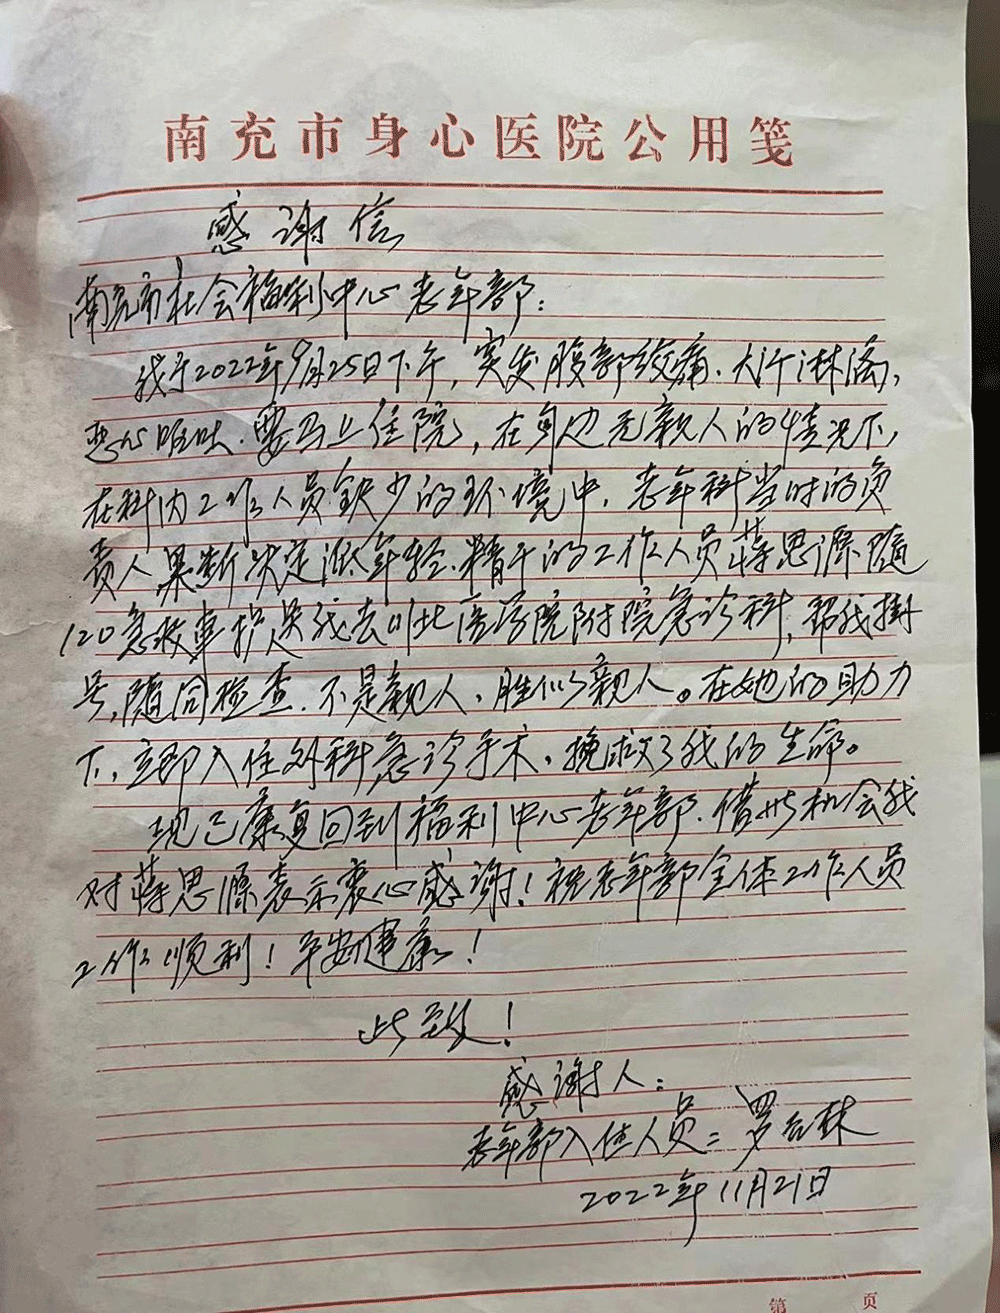 南充市身心医院公用笺
感谢信
南充市社会福利中心老年部:
我于2022年9月25日下午,突发腹部绞痛、大汗淋漓,
恶心呕吐、要马上住院,在身边无亲人的情况下,
在科内工作人员缺少的环境中,老年科当时的负
责人果断决定派年轻、精干的工作人员蒋思源随
120急救车护送我去川北医学院附院急诊科,帮我掛
号,随同检查、不是亲人、胜似亲人。在她的助力
下,立即入住外科急诊手术,挽救了我的生命。
现已康复回到福利中心老年部、借此机会我
对蒋思源表示衷心感谢!祝老年部全体工作人员
工作顺利!平安健康!
此致!
感谢人:
老年部入住人员:罗林
2022年11月21日
第 页